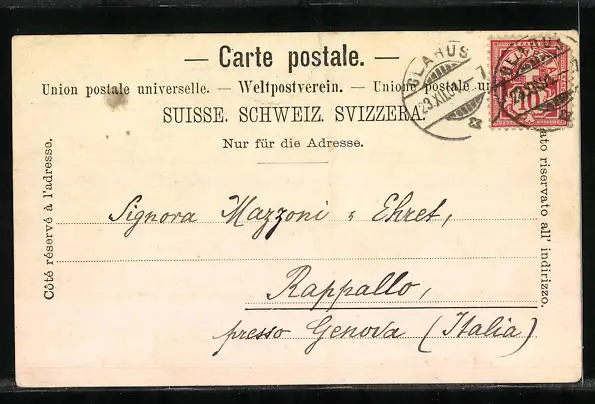 — Carte postale. —
Union postale universelle. — Weltpostverein. — Unione postale un
SUISSE. SCHWEIZ. SVIZZERA.
Nur für die Adresse.
Côté réservé à l'adresse.
ato riservato all' indirizzo.
GLARUS
10
Signora Mazzoni - Ehret,
Rappallo,
presso Genova (Italia)